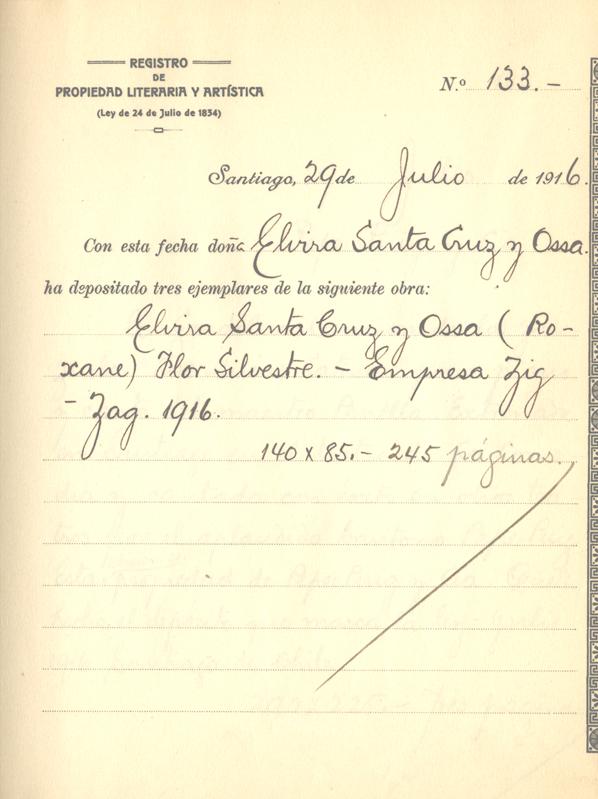 REGISTRO
DE
PROPIEDAD LITERARIA Y ARTÍSTICA
(Ley de 24 de Julio de 1834)
N.º 133.-
Santiago, 29 de Julio de 1916.
Con esta fecha doña Elvira Santa Cruz y Ossa.
ha depositado tres ejemplares de la siguiente obra:
Elvira Santa Cruz y Ossa (Ro-
xane) Flor Silvestre. - Empresa Zig
- Zag. 1916.
140 x 85.- 245 páginas.